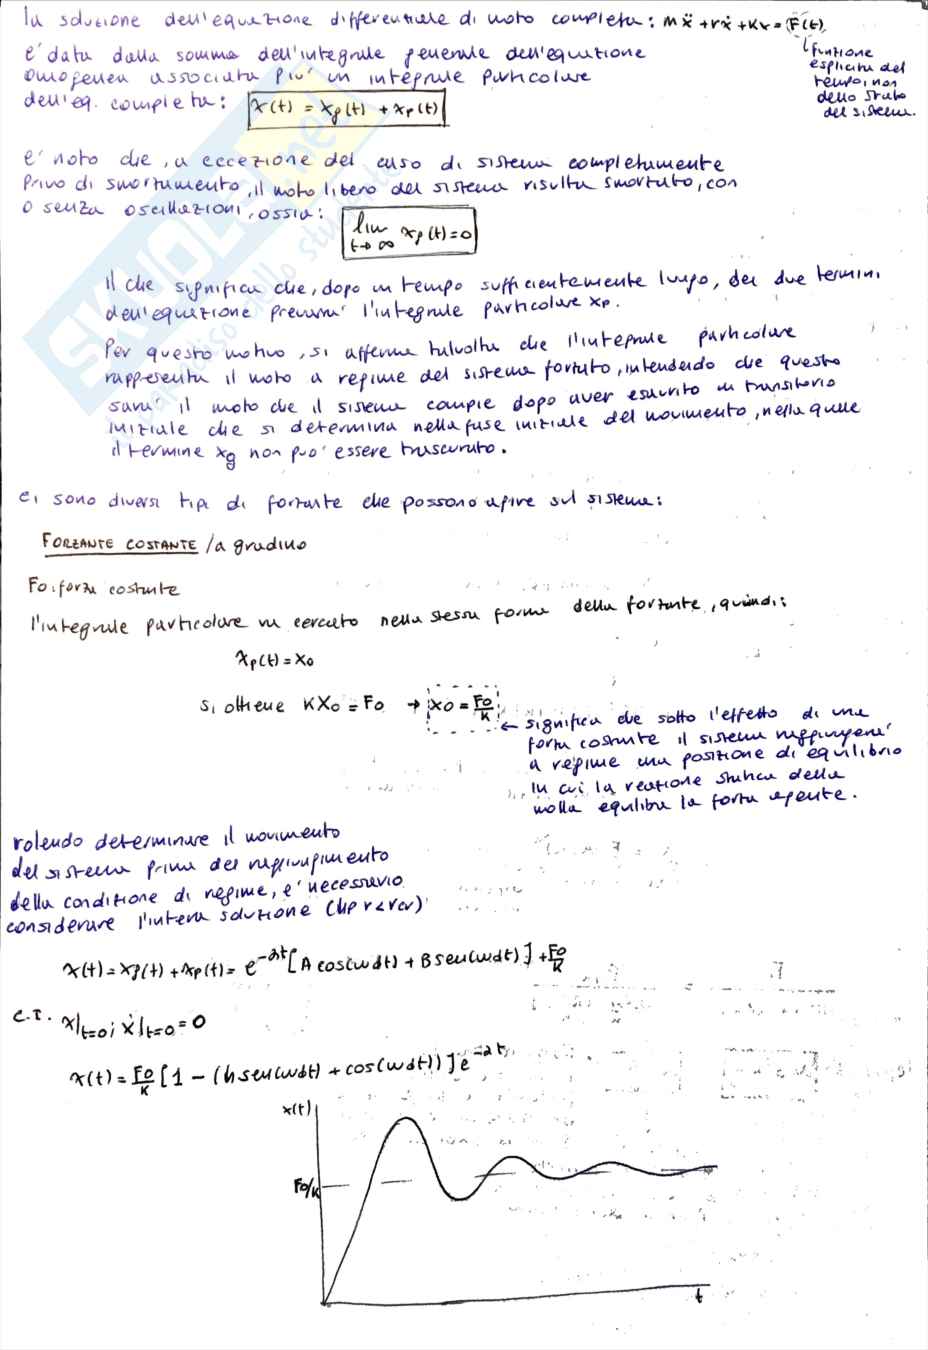 la soluzione dell'equazione differenziale di moto completa: mẍ+rẋ+Kx=F(t)
funzione
esplicita del
tempo, non
dello stato
del sistema.
e' data dalla somma dell'integrale generale dell'equazione
omogenea associata piu' un integrale particolare
dell'eq. completa: x(t) = xg(t) + xp(t)
e' noto che, a eccezione del caso di sistema completamente
privo di smorzamento, il moto libero del sistema risulta smorzato, con
o senza oscillazioni, ossia: lim t→∞ xg(t)=0
Il che significa che, dopo un tempo sufficientemente lungo, dei due termini
dell'equazione prevarra' l'integrale particolare xp.
Per questo motivo, si afferma talvolta che l'integrale particolare
rappresenta il moto a regime del sistema forzato, intendendo che questo
sara' il moto che il sistema compie dopo aver esaurito un transitorio
iniziale che si determina nella fase iniziale del movimento, nella quale
il termine xg non puo' essere trascurato.
ci sono diversi tipi di forzante che possono agire sul sistema:
FORZANTE COSTANTE /a gradino
Fo: forza costante
l'integrale particolare va cercato nella stessa forma della forzante, quindi:
xp(t)=xo
si ottiene KXo=Fo → xo = Fo/K
← significa che sotto l'effetto di una
forza costante il sistema raggiungera'
a regime una posizione di equilibrio
in cui la reazione statica della
molla equilibra la forza agente.
volendo determinare il movimento
del sistema prima del raggiungimento
della condizione di regime, e' necessario
considerare l'intera soluzione (hp r<rcr)
x(t)=xg(t)+xp(t)= e^-αt[A cos(ωdt)+B sen(ωdt)]+Fo/K
c.I. x|t=0; ẋ|t=0=0
x(t)=Fo/K [1-(h sen(ωdt)+cos(ωdt))]e^-αt
x(t)
Fo/K
t
SKUOLA.net
paradiso dello studente